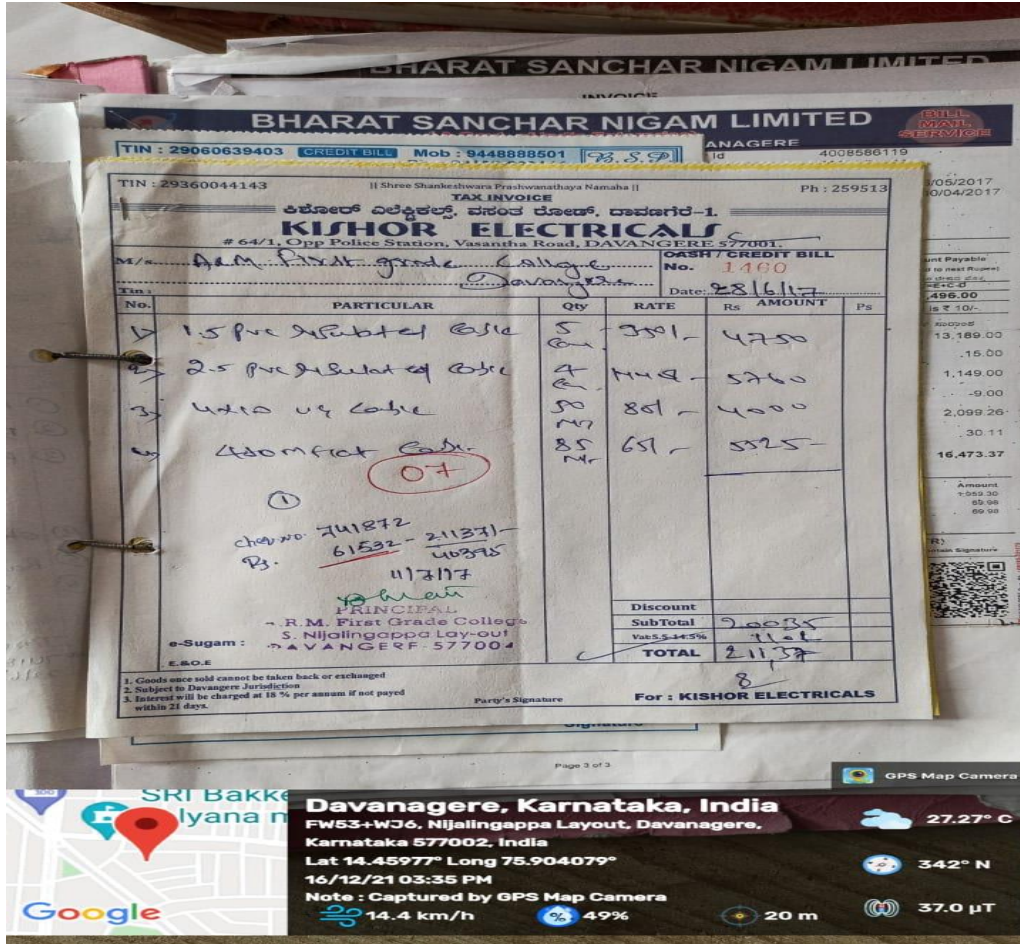 BHARAT SANCHAR NIGAM LIMITED
INVOICE
BHARAT SANCHAR NIGAM LIMITED
BILL MAIL SERVICE
TIN : 29060639403 CREDIT BILL Mob : 9448888501 B.S.P
ANAGERE
Id 4008586119
/05/2017
0/04/2017
TIN : 29360044143 || Shree Shankeshwara Prashwanathaya Namaha || Ph : 259513
TAX INVOICE
ಕಿಶೋರ್ ಎಲೆಕ್ಟ್ರಿಕಲ್ಸ್, ವಸಂತ ರೋಡ್, ದಾವಣಗೆರೆ-1.
KISHOR ELECTRICALS
# 64/1, Opp Police Station, Vasantha Road, DAVANGERE 577001.
M/s. ARM First grade College
CASH / CREDIT BILL
No. 1460
Davangere
Tin :
Date: 28/6/17
No. PARTICULAR Qty RATE Rs AMOUNT Ps
1> 1.5 pvc Cable 5 950/- 4750
2> 2.5 pvc Cable 4 5760
3> UG Cable 50 Mtr 80/- 4000
Flat Cable 85 Mtr 65/- 5525-
07
1
Cheq no. 741872
Rs. 61532 - 21137/-
40395
11/7/17
PRINCIPAL
.R.M. First Grade College
S. Nijalingappa Lay-out
DAVANGERE-577004
e-Sugam :
E.&O.E
Discount
SubTotal 20035
Vat:5.5-14.5%
TOTAL 21137
1. Goods once sold cannot be taken back or exchanged
2. Subject to Davangere Jurisdiction
3. Interest will be charged at 18 % per annum if not payed
within 21 days.
Party's Signature
For : KISHOR ELECTRICALS
unt Payable
to next Rupee)
=E+C-D
,496.00
is ₹ 10/-.
13,189.00
.15.00
1,149.00
-9.00
2,099.26
30.11
16,473.37
Amount
89.98
89.98
Signature
Signature
Page 3 of 3
GPS Map Camera
SRI Bakke
lyana m
Google
Davanagere, Karnataka, India
FW53+WJ6, Nijalingappa Layout, Davanagere,
Karnataka 577002, India
Lat 14.45977° Long 75.904079°
16/12/21 03:35 PM
Note : Captured by GPS Map Camera
27.27° C
342° N
14.4 km/h
49%
20 m
37.0 µT